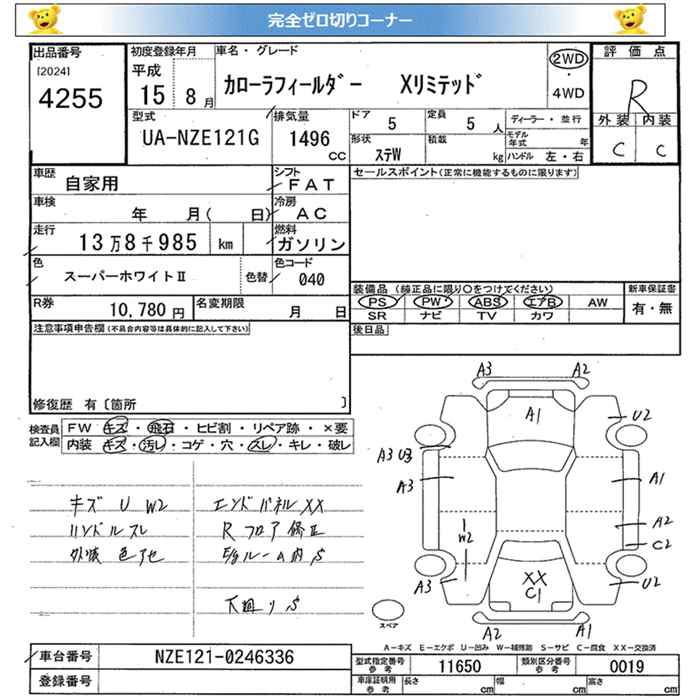 完全ゼロ切りコーナー
出品番号
[2024]
4255
初度登録年月
平成
15 8月
車名・グレード
カローラフィールダー Xリミテッド
2WD
・
4WD
評価点
R
外装 内装
C C
型式
UA-NZE121G
排気量
1496
CC
ドア
5
定員
5 人
ディーラー・並行
形状
ステW
積載
kg
モデル年式
年
ハンドル 左・右
車歴
自家用
シフト
FAT
セールスポイント(正常に機能するものに限ります)
車検
年 月( 日)
冷房
AC
走行
13万8千985 km
燃料
ガソリン
色
スーパーホワイトⅡ
色替
色コード
040
装備品(純正品に限り○をつけてください)
新車保証書
PS PW ABS エアB AW
有・無
SR ナビ TV カワ
R券
10,780 円
名変期限
月 日
後日品
注意事項申告欄(不具合内容等は具体的に記入して下さい)
修復歴 有〔箇所 〕
検査員記入欄
FW キズ・飛石・ヒビ割・リペア跡・×要
内装 キズ・汚レ・コゲ・穴・スレ・キレ・破レ
キズ U W2
ハンドルスレ
外装 色アセ
エンドパネルXX
Rフロア修正
E/gルーム内S
下廻りS
A3 A2
A1
U2
A3 U3
A3
A1
W2
A2
C2
A3
XX
C1
U2
A2 A1
スペア
A-キズ E-エクボ U-凹み W-補修跡 S-サビ C-腐食 XX-交換済
車台番号
NZE121-0246336
登録番号
型式指定番号
参考
11650
類別区分番号
参考
0019
車庫証明用
参考
長さ cm 幅 cm 高さ cm